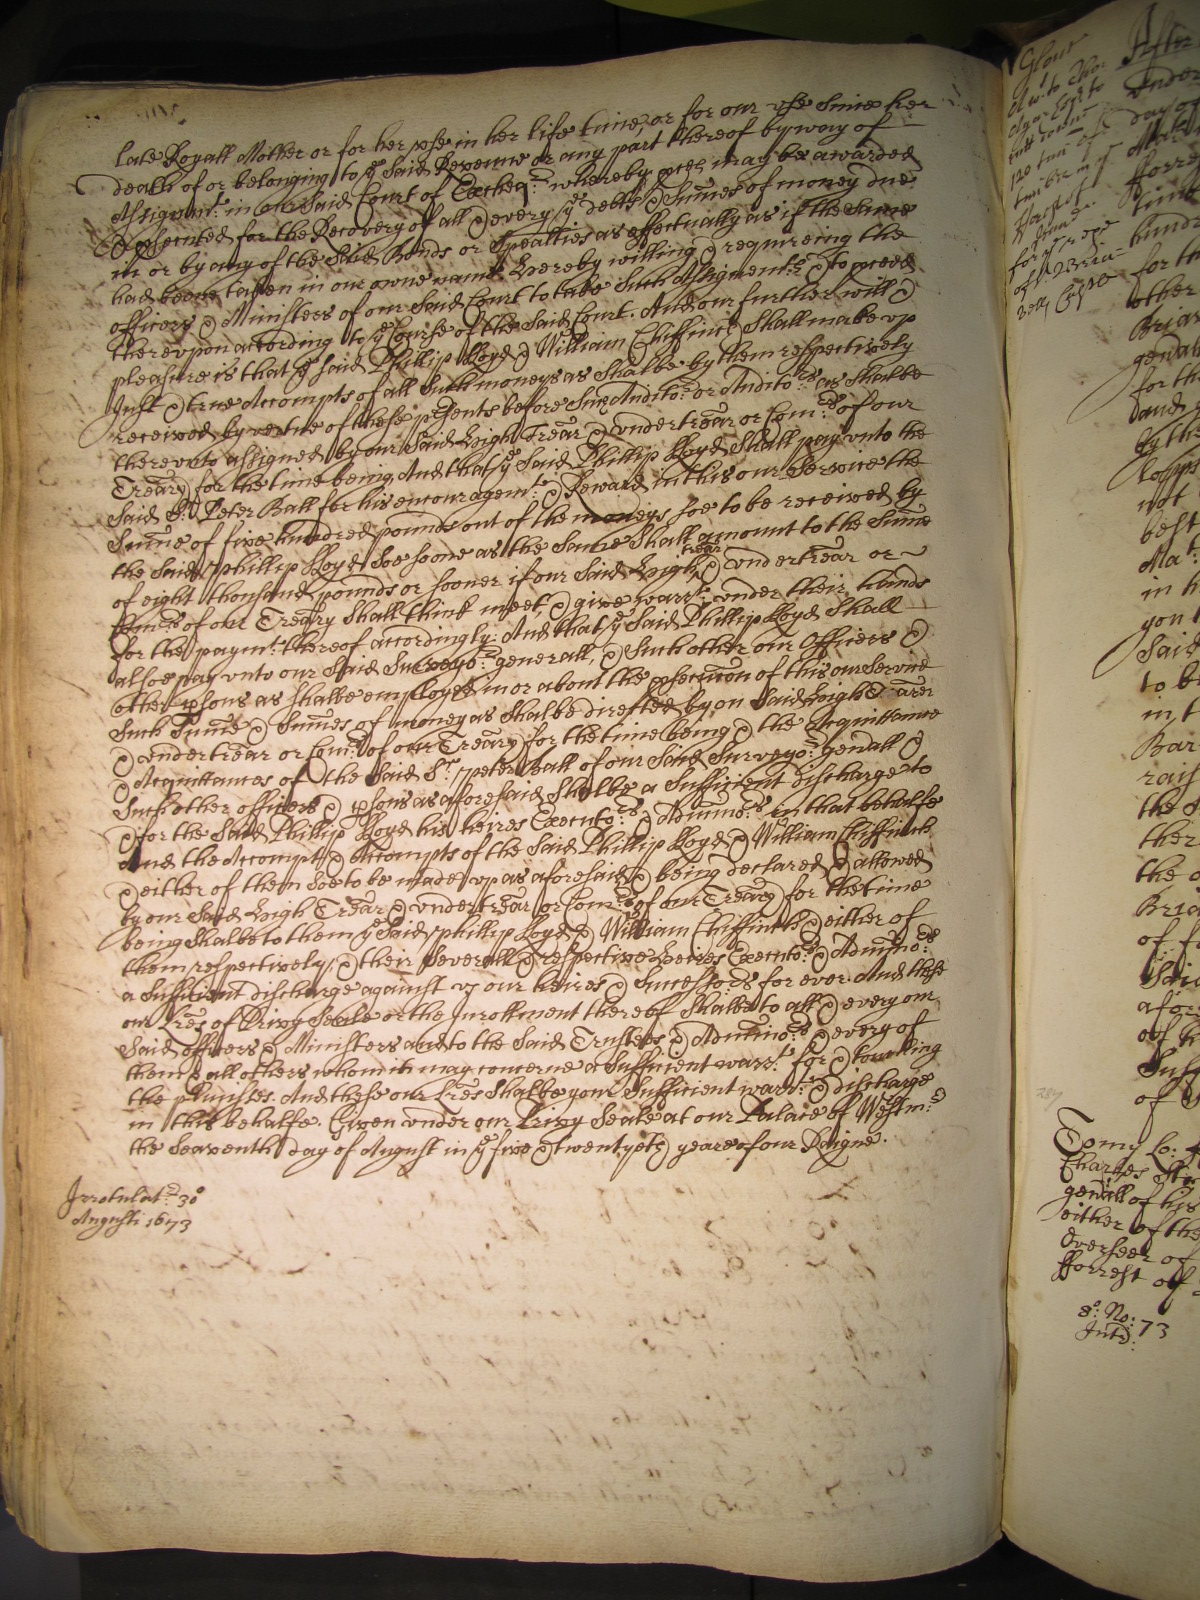 late Royall Mother or for her vse in her life time, or for our vse Since her
death of or belonging to ye Said Revenue or any part thereof by way of
Assignmt. in our Said Court of Excheqr. whereby may be awarded
& executed for the Recovery of all & every ye debts & Sumes of money due
in or by any of the Said Bonds or Spealties as effectually as if the Same
had beene taken in our owne name hereby willing & requireing the
officers & Ministers of our Said Court to take Such Assignemts. & to proceed
therevpon according to ye Course of the Said Court. And our further will &
pleasure is that ye said Phillip Lloyd & William Chiffinch Shall make vp
Just & true Accompts of all Such moneys as Shalbe by them respectively
received by vertue of these psents before Such Auditor. or Auditors. as Shalbe
therevnto assigned by our Said High Treãr & vndertreãr or Comrs. of our
Treãry for the time being And that ye Said Phillip Lloyd Shall pay vnto the
Said Sr. Peter Ball for his encouragemt. & Reward in this our Service the
Sume of five hundred pounds out of the moneys soe to be received by
the Said Phillip Lloyd Soe soone as the Same Shall amount to the Sume
of eight thousand pounds or sooner if our Said High Treãr & vndertreãr or
Comrs. of our Treãry Shall think meet, & give warrt. vnder their hands
for the paymt. thereof accordingly: And that ye Said Phillip Lloyd Shall
alsoe pay vnto our Said Surveyor. generall, & Such other our Officers &
other psons as shalbe employed in or about the psecution of this our Service
Such Sume & Sumes of money as Shalbe directed by our Said High Treãr
& vndertreãr or Comrs. of our Treãry for the time being & the Acquittance
& Acquittances of the Said Sr. Peter Ball of our Said Surveyor. genall &
Such other officers & psons as aforesaid Shalbe a Sufficient discharge to
& for the Said Phillip Lloyd his heires Executors. & Adminors. in that behalfe
And the Accompt & Accompts of the Said Phillip Lloyd & William Chiffinch
& either of them Soe to be made vp as aforesaid & being declared & allowed
by our Said High Treãr & vndertreãr or Comrs. of our Treãry for the time
being Shalbe to them ye Said Phillip Lloyd & William Chiffinch & either of
them respectively & their Severall & respective heires Executors. & Adminors.
a Sufficient discharge against vs our heires & Successors for ever. And these
our Lres of Privy Seale or the Inrollment thereof Shalbe to all & every our
Said officers & Ministers and to the Said Trustees & Adminors. & every of
them & all others whom it may concerne a Sufficient warrt. for & touching
the pmisses. And these our Lres Shalbe your Sufficient warrt. & discharge
in this behalfe. Given vnder our Privy Seale at our Palace of Westmr.
the Seaventh day of August in ye five & twentyeth yeare of our Raigne.
Irrotulat. 30
Augusti 1673
Glouc
After
vnder
day of
time
hundr
for th
other
Briar
gendall
for th
by the
lopps
not
best
Mat.
in h
you
Said
to b
in t
Bar
rais
the
ther
the
Bria
of f
Said
afor
of h
Such
of
To my Lo:
Charles
genãll of his
either of the
Overseer of
fforrest of
8o. No: 73
Intd: